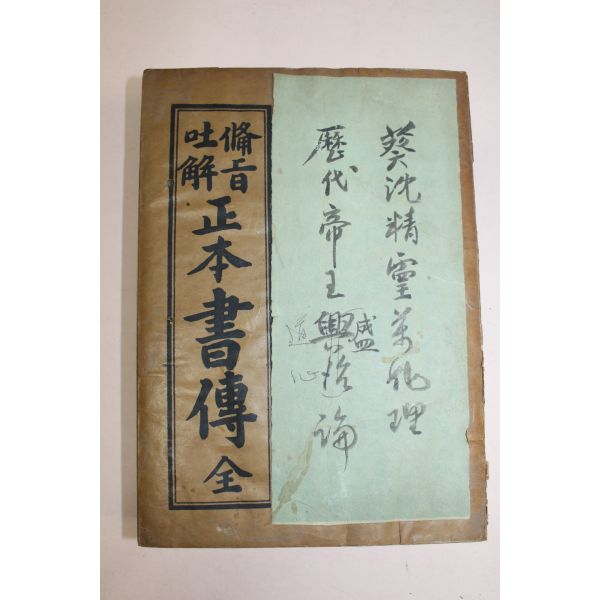 沈精靈萬理
歷代帝王興論
盛
道心
備旨
吐解
正本書傳全